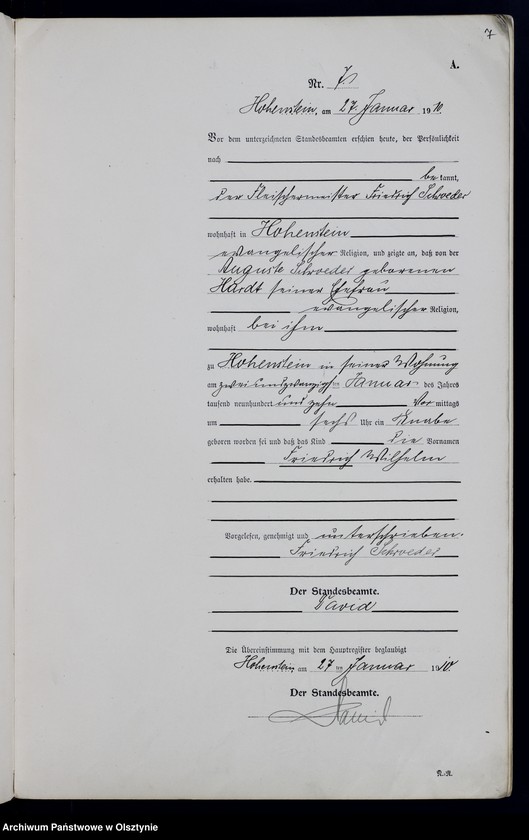 7
A.
Nr. 7
Hohenstein, am 27 Januar 1910.
Vor dem unterzeichneten Standesbeamten erschien heute, der Persönlichkeit
nach
bekannt,
der Fleischermeister Friedrich Schroeder
wohnhaft in Hohenstein
evangelischer Religion, und zeigte an, daß von der
Auguste Schroeder geborenen
Hardt seiner Ehefrau
evangelischer Religion,
wohnhaft bei ihm
zu Hohenstein in seiner Wohnung
am zwei und zwanzigsten Januar des Jahres
tausend neunhundert und zehn Vor mittags
um sechs Uhr ein Knabe
geboren worden sei und daß das Kind die Vornamen
Friedrich Wilhelm
erhalten habe.
Vorgelesen, genehmigt und unterschrieben.
Friedrich Schroeder
Der Standesbeamte.
David
Die Übereinstimmung mit dem Hauptregister beglaubigt
Hohenstein am 27 ten Januar 1910.
Der Standesbeamte.
David
Archiwum Państwowe w Olsztynie